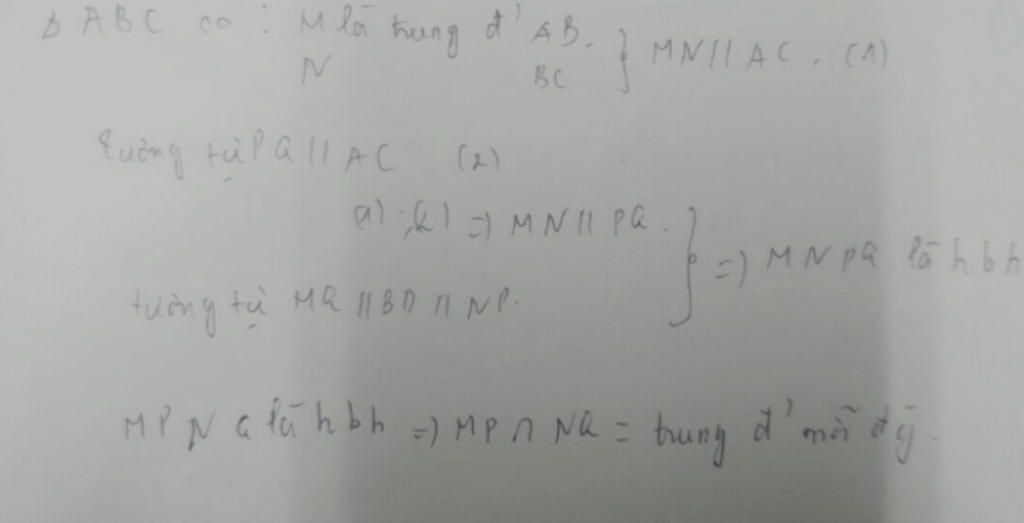 Δ ABC có : M là trung đ' AB. } MN // AC . (1)
N BC
tương tự PQ // AC (2)
(1) ; (2) => MN // PQ. } => MNPQ là hbh
tương tự MQ // BD // NP.
MPNQ là hbh => MP ∩ NQ = trung đ' mỗi đg.